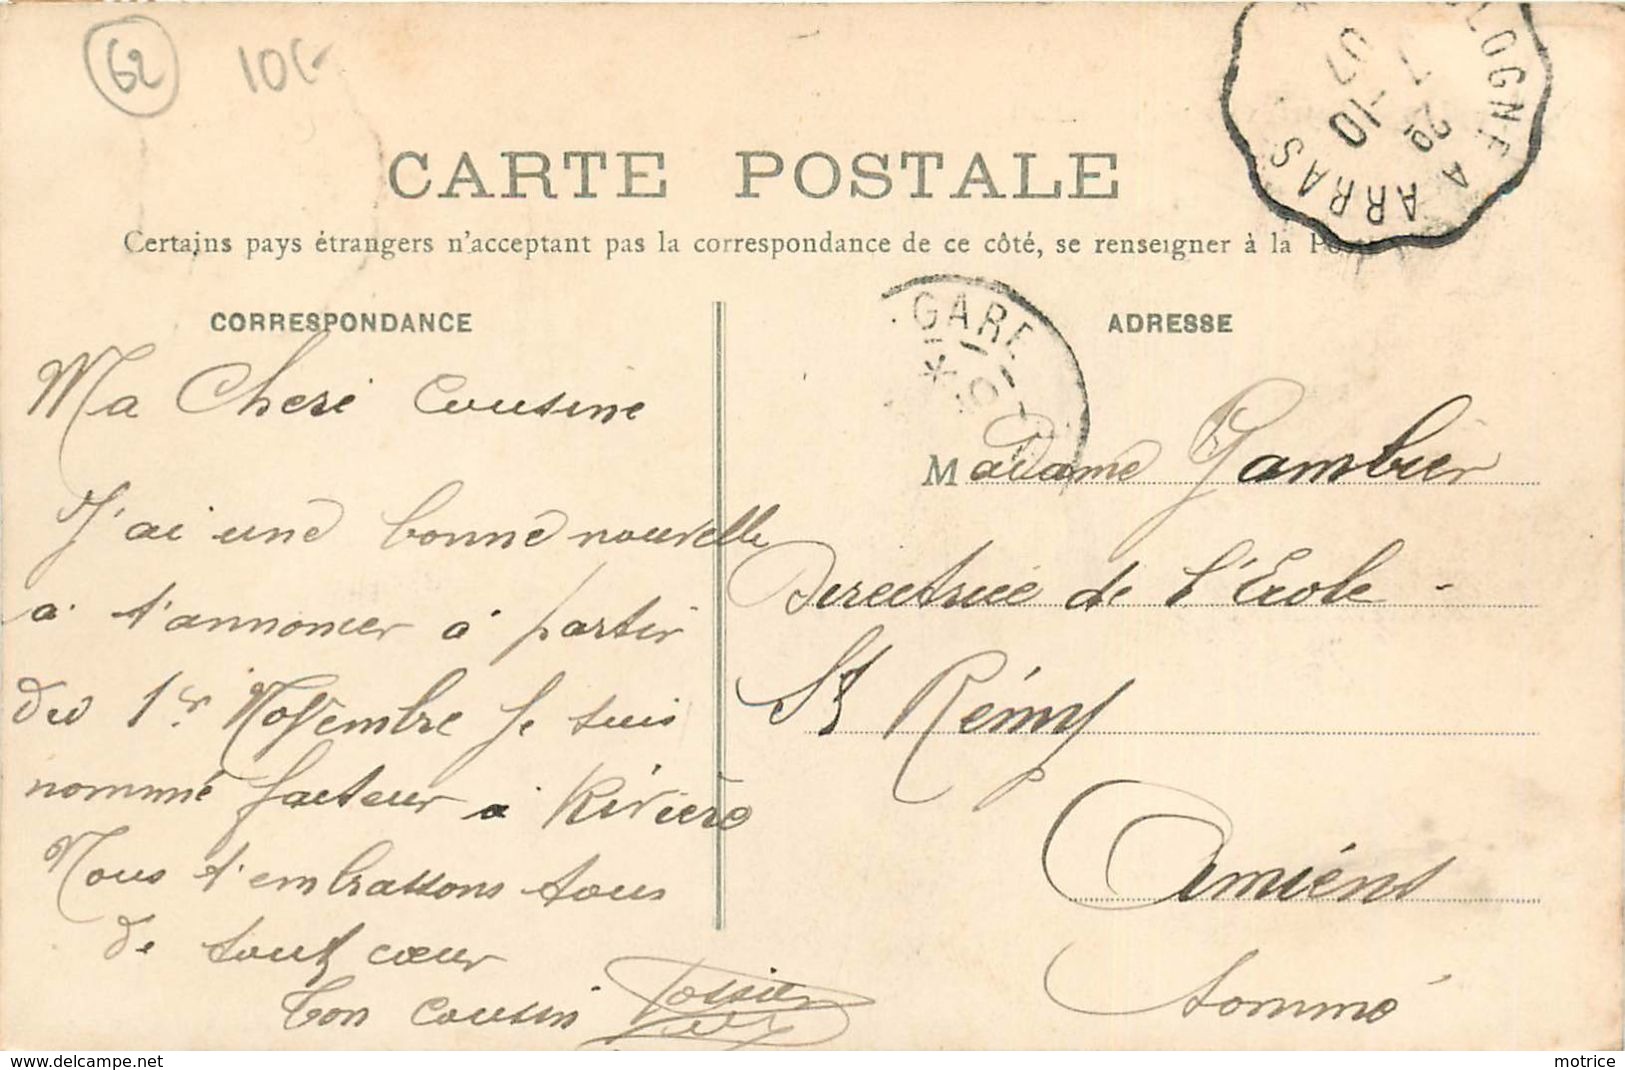 62
10€
CARTE POSTALE
Certains pays étrangers n'acceptant pas la correspondance de ce côté, se renseigner à la
OLOGNE A ARRAS
29
-10
07
GARE
CORRESPONDANCE
Ma Cheré Cousine
J'ai une bonne nouvelle
a t'annoncer à partir
du 1er Novembre Je suis
nommé facteur a Rivière
Nous t'embrassons tous
de tout cœur
Ton cousin
ADRESSE
Madame Gambier
Directrice de l'Ecole -
St Rémy
Amiéns
Somme
delcampe.net
motrice